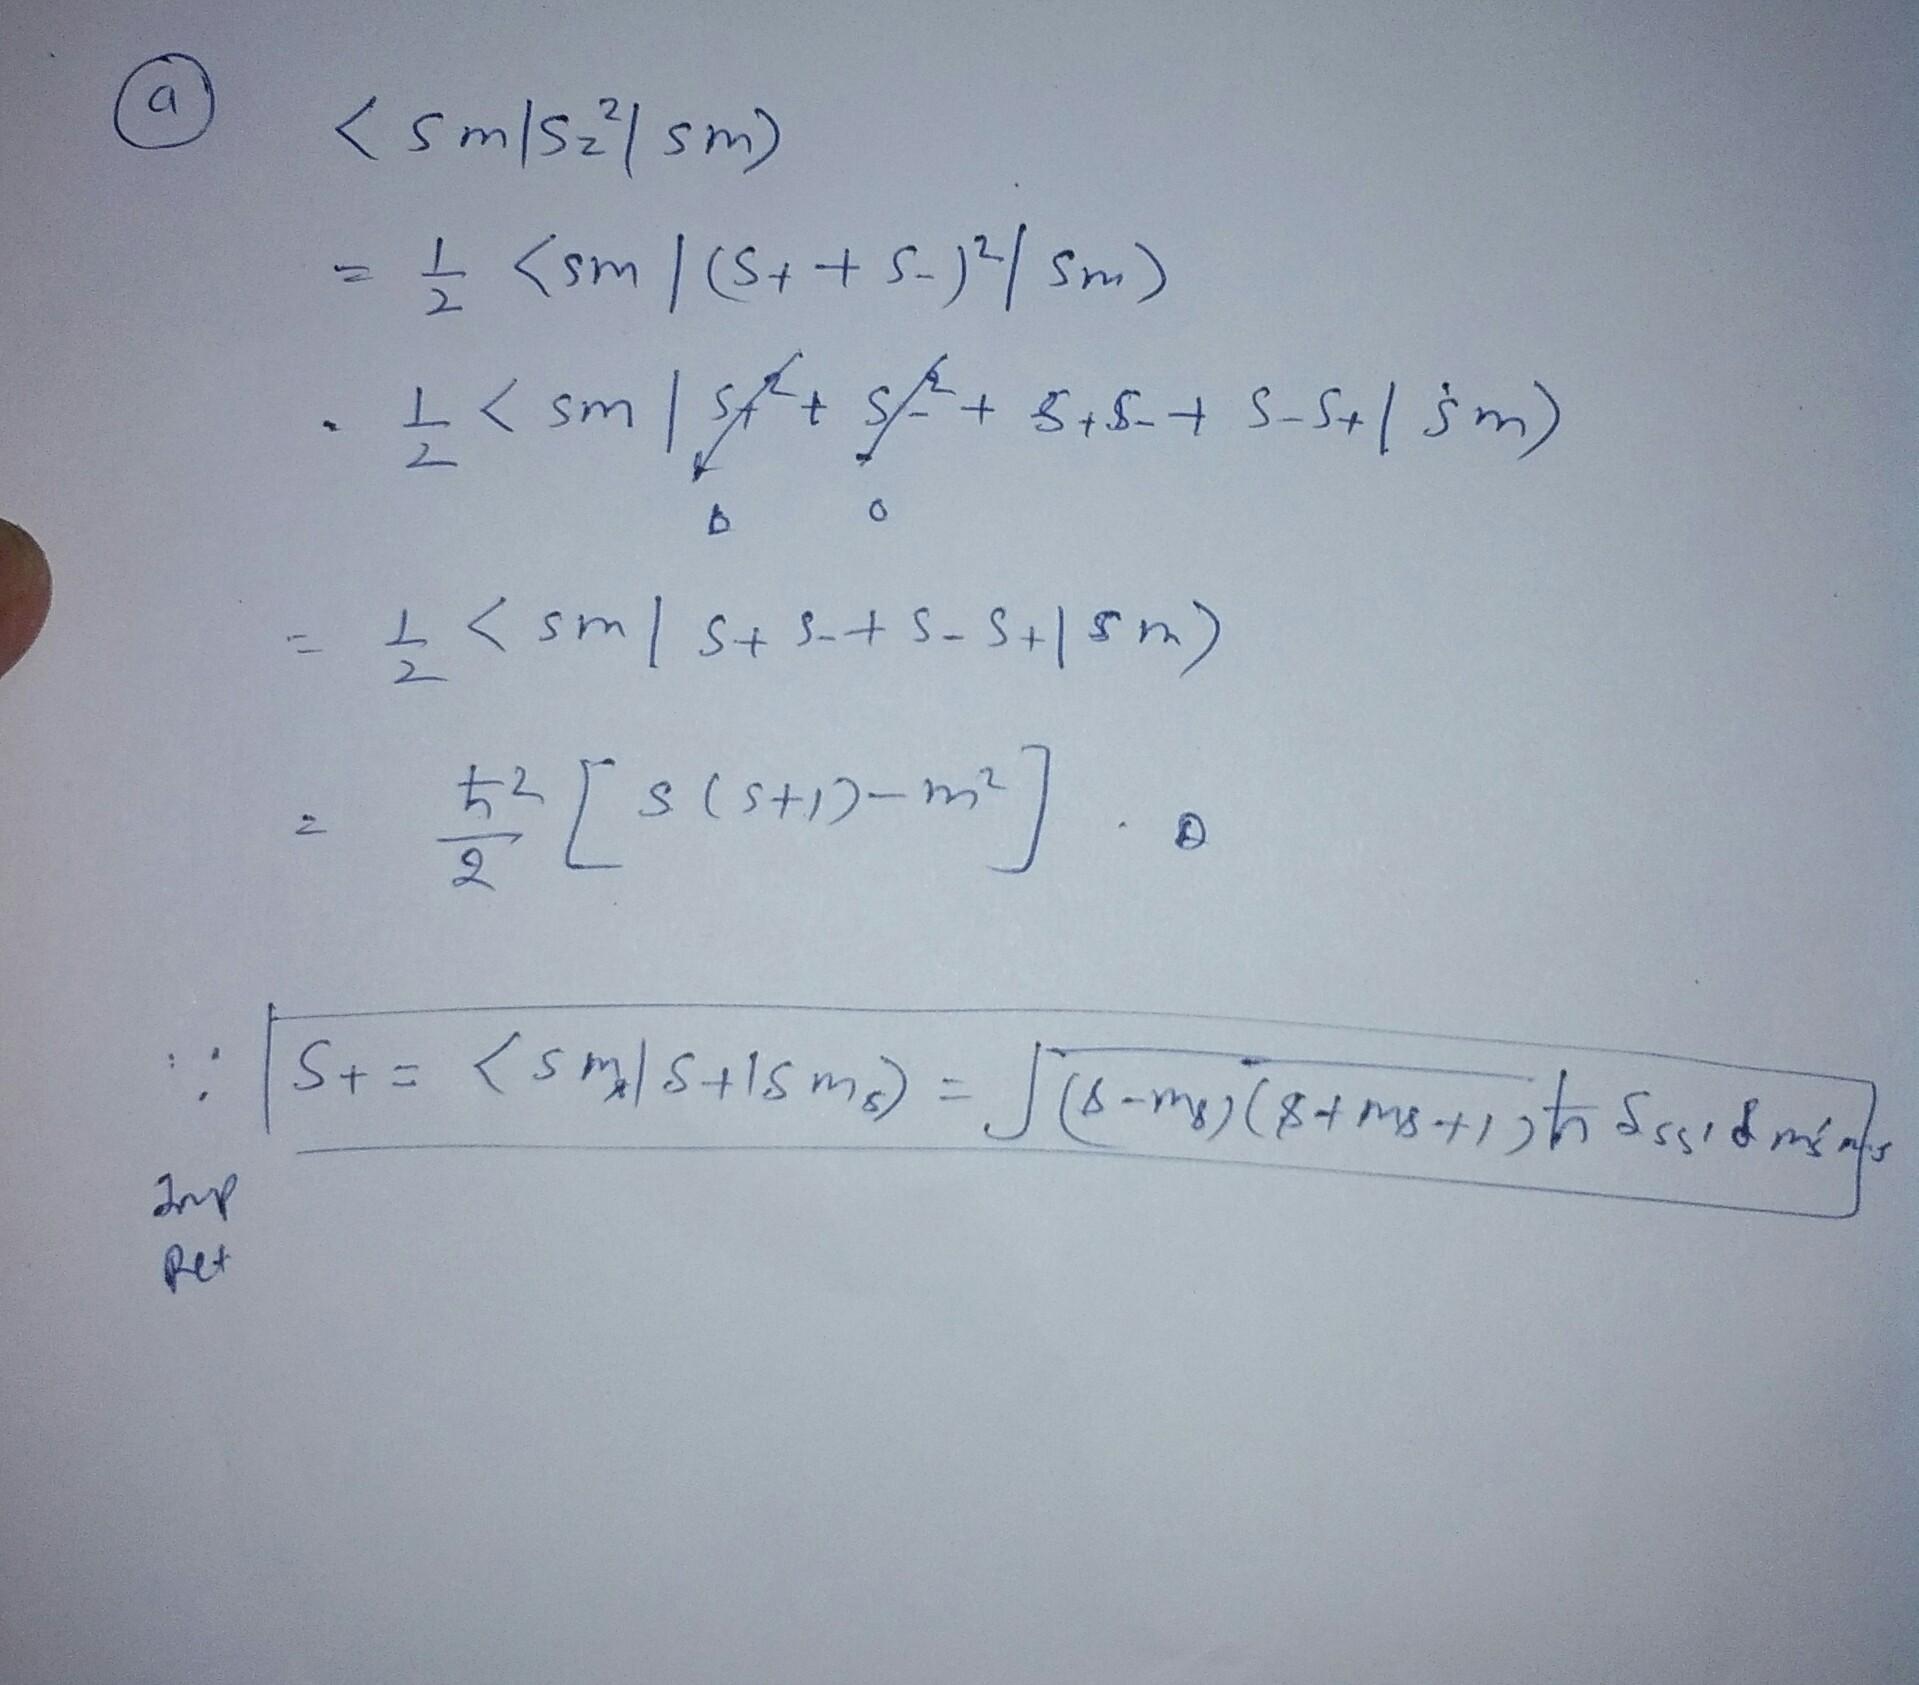 a
< sm|Sz²|sm)
= 1/2 <sm|(S+ + S-)²|sm)
. 1/2 < sm | S+² + S-² + S+S- + S-S+ | sm)
0 0
= 1/2 < sm | S+ S- + S- S+ | sm)
= ħ²/2 [ s(s+1) - m² ] .
∵ S+ = < s m | S+ | s ms) = √(s-ms)(s+ms+1) ħ δss' δms'ms
Imp